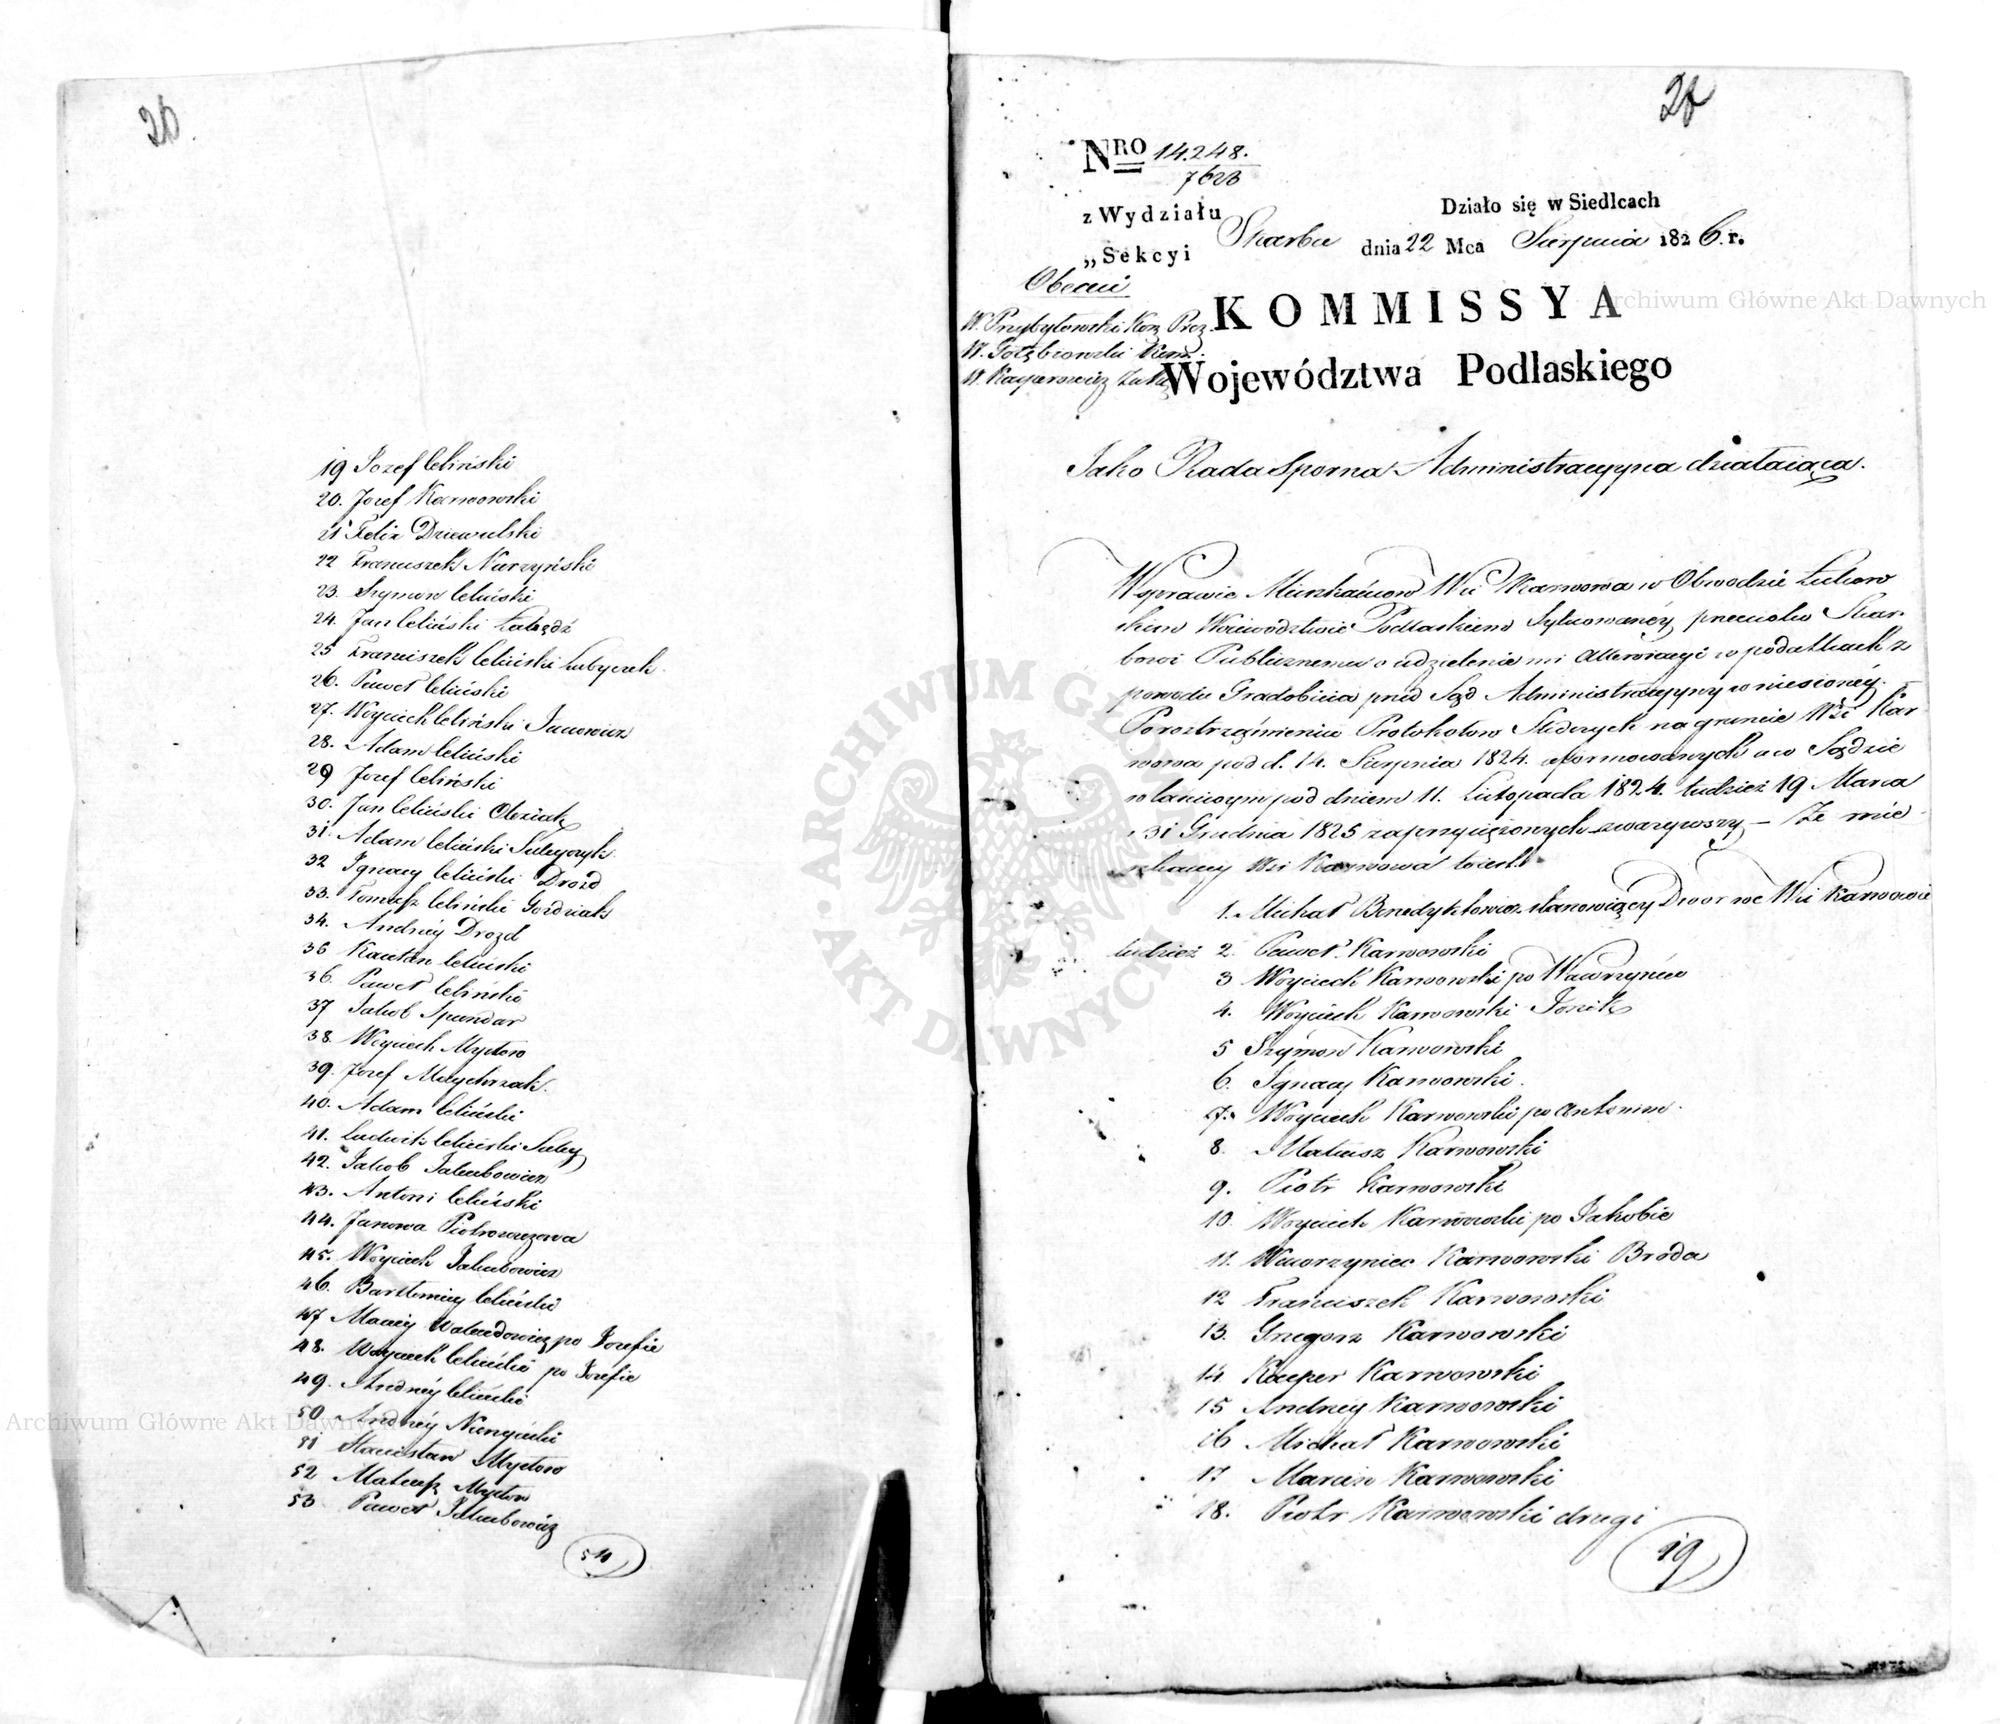 26.
19 Jozef Celiński
20. Jozef Karwowski
21 Felix Dziewulski
22 Franciszek Nurzyński
23. Szymon Celiński
24. Jan Celiński Łabędź
25 Franciszek Celiński Łubyczek
26. Paweł Celiński
27. Woyciech Celiński Jacowicz
28. Adam Celiński
29 Jozef Celiński
30. Jan Celiński Olexiak
31. Adam Celiński
32 Ignacy Celiński Drozd
33. Tomasz Celiński Gozdziak
34. Andrzéy Drozd
36 Kaietan Celiński
36. Paweł Celiński
37 Jakob Spundar
38. Woyciech Myctow
39. Jozef Maychrzak.
40. Adam Celiński
41. Ludwik Celiński Suley
42. Jakob Jakubowicz
43. Antoni Celiński
44. Janowa Piotrowiczowa
45. Woyciech Jakubowicz
46. Bartłomiey Celiński
47 Maciey po Jozefie
48. Woyciech Celiński po Jozefie
49. Andrzéy Celiński
50 Andrzéy
51 Stanisław Myctow
52 Mateusz Myctow
53 Paweł Jakubowicz
54
NRO 14.248.
7623
z Wydziału
„ Sekcyi
Skarbu
Działo się w Siedlcach
dnia 22 Mca Sierpnia 1826.r.
Obecni
W. Przybyłowski Kom. Prez.
W. Gołębiowski Kom.
W. Kacperowicz
KOMMISSYA
Województwa Podlaskiego
Jako Rada Sporna Administracyyna działaiąca.
W sprawie Mieszkańcow Wsi Karwowa w Obwodzie Łukow
skim Woiewodztwie Podlaskiem Sytuowanéy przeciwko Skar-
bowi Publicznemu o udzielenie im Allewiacyi w podatkach z
powodu Gradobicia przed Sąd Administracyyny wniesionéy.
Po roztrząśnieniu Protokołow Sledczych na gruncie Wsi Kar
wowa pod d. 14. Sierpnia 1824. uformowanych a w Sądzie
właściwym pod dniem 11. Listopada 1824. tudzież 19 Marca
i 31 Grudnia 1825 zaprzysiężonych zważywszy – Że mie-
szkańcy Wsi Karwowa to iest:
1. Michał Benedyktowicz stanowiący Dwor we Wsi Karwowie
tudzież 2. Paweł Karwowski
3 Woyciech Karwowski po Wawrzyńcu
4. Woyciech Karwowski Josik
5 Szymon Karwowski
6. Ignacy Karwowski.
7. Woyciech Karwowski po Antonim.
8. Mateusz Karwowski
9. Piotr Karwowski
10. Woyciech Karwowski po Jakobie
11. Wawrzyniec Karwowski Broda
12 Franciszek Karwowski
13. Grzegorz Karwowski
14 Kacper Karwowski
15 Andrzéy Karwowski
16 Michał Karwowski
17 Marcin Karwowski
18. Piotr Karwowski drugi
19
ARCHIWUM GŁÓWNE AKT DAWNYCH
Archiwum Główne Akt Dawnych
Archiwum Główne Akt Dawnych